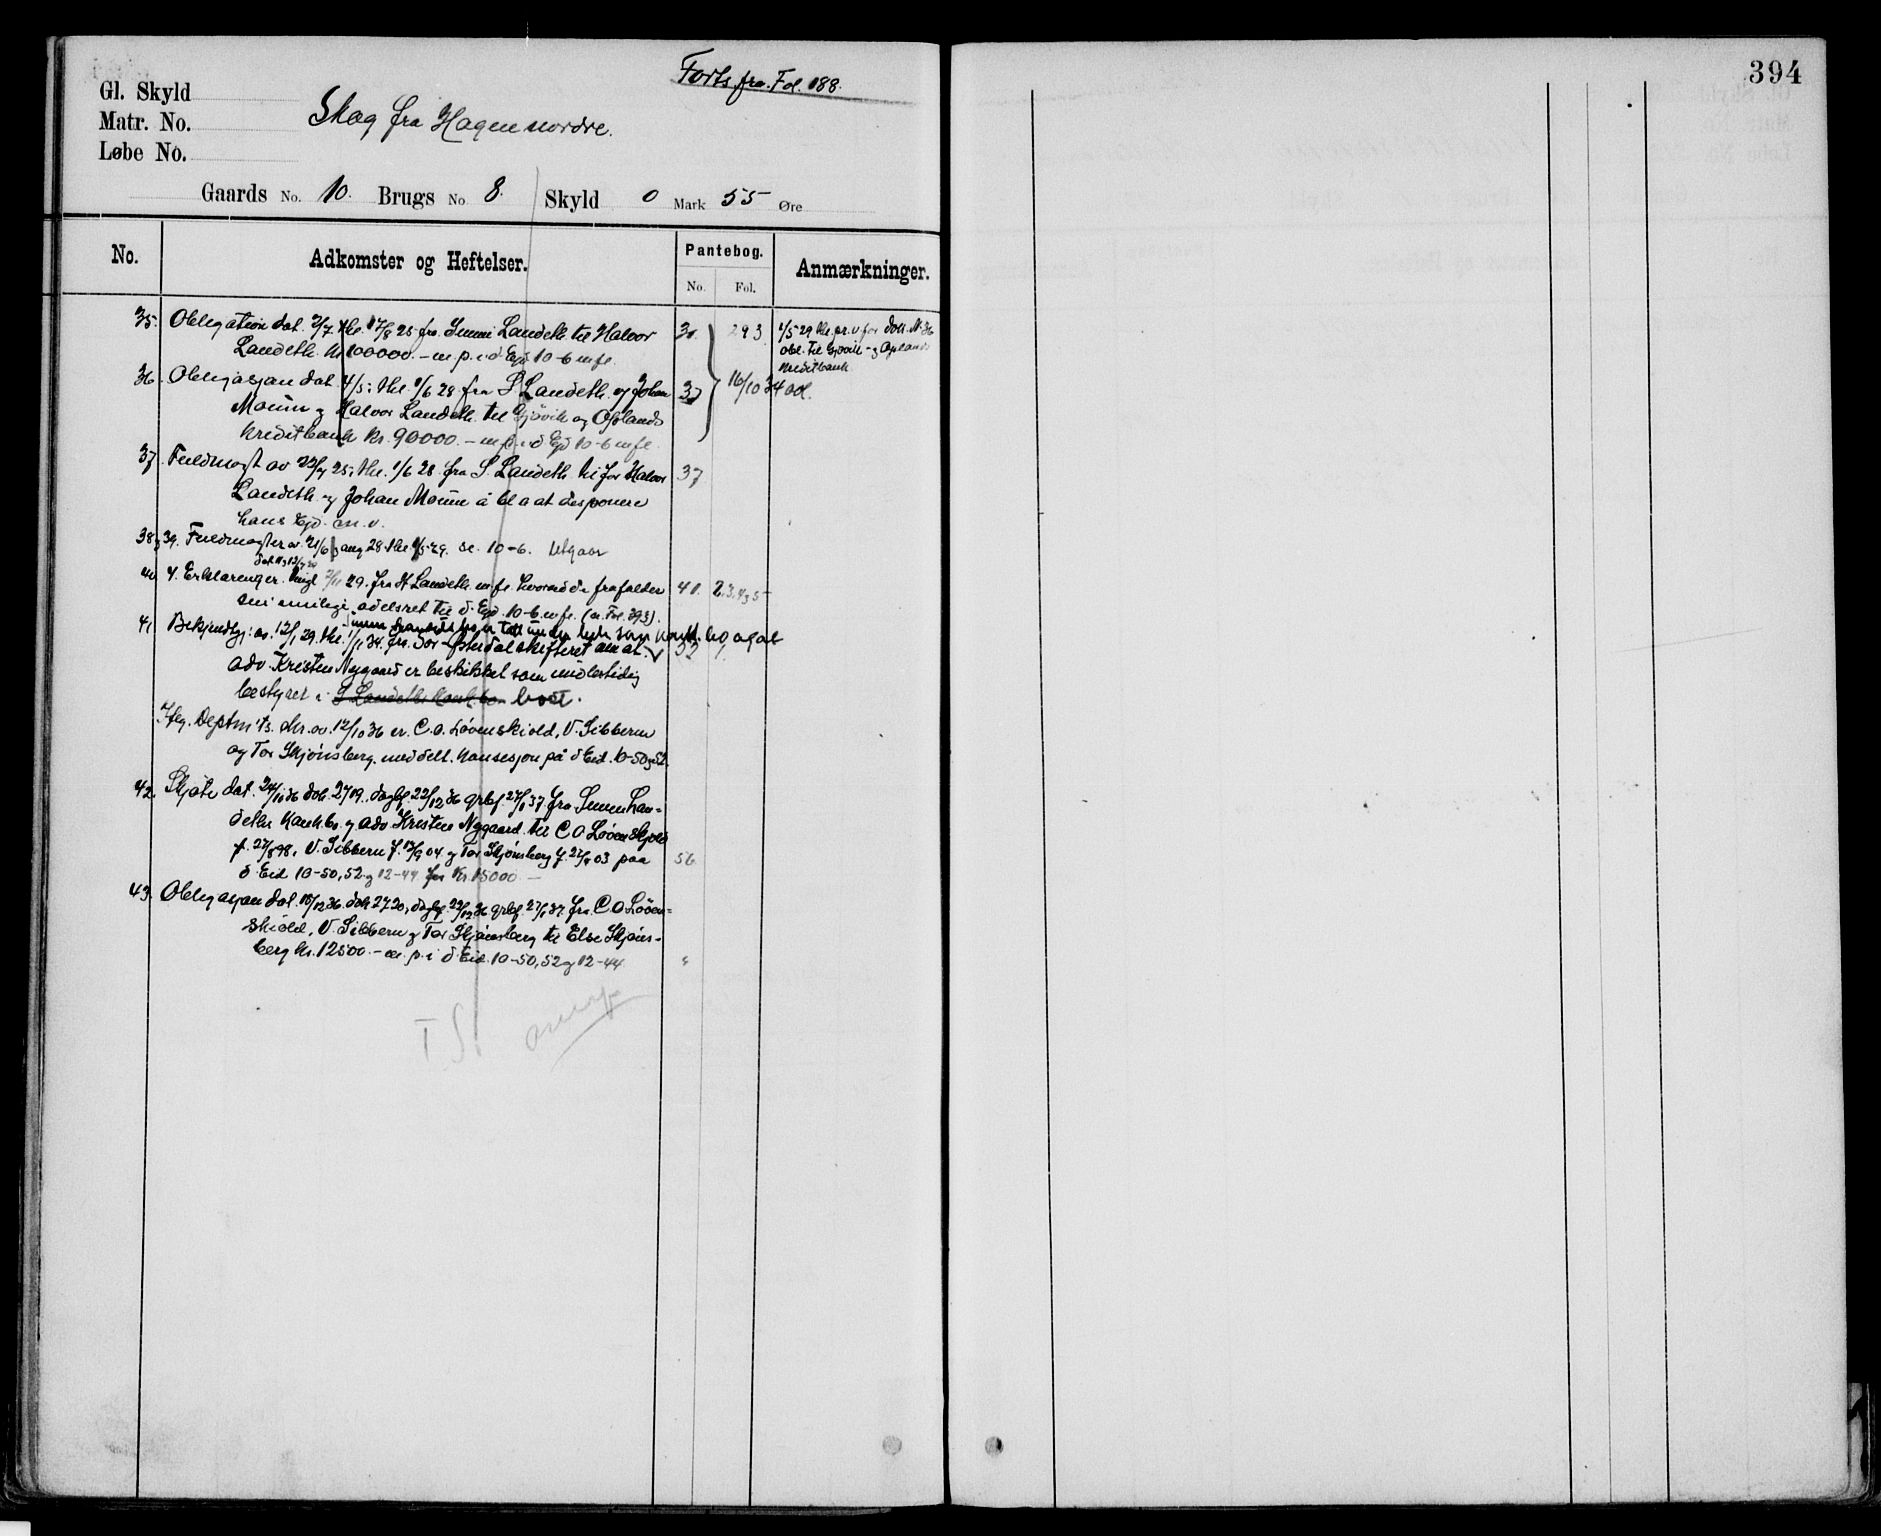 394
Forts. fra Fol. 188.
Gl. Skyld
Matr. No.
Løbe No.
Skog fra Hagen nordre.
Gaards No. 10. Brugs No 8. Skyld 0 Mark 55 Øre
No. Adkomster og Heftelser. Pantebog. No. Fol. Anmærkninger.
35. Obligation dat. 2/7 thl. 17/8 25 fra Simen Landeth til Halvor 30. 293
Landeth kr 100000.- m. p. i d. Egd 10-6 m fl.
1/5 29 thl. pr. v for Dok. N. 36
obl. til Gjøvik - og Oplands
Kreditbank
36. Obligasjon dat. 4/5, thl. 1/6 28 fra S. Landeth og Johan 37 16/10 34 avl.
Momm og Halvor Landeth til Gjøvik og Oplands
Kreditbank kr. 90000.- m. p. i d Egd 10-6 m fl.
37. Fuldmagt av 22/7 25, thl. 1/6 28 fra S. Landeth til for Halvor 37
Landeth og Johan Momm å bl a at disponere
hans Egd. m. v.
38 & 39. Fuldmagter av 21/6 og aug 28 thl 1/5 29. se. 10-6. Utgaar
40. 4. Erklæringer tingl 2/11 29. fra H Landeth m. fl. hvorved de frafalder 41. 2,3,4 og 5
sin mulige odelsret til d. Egd. 10-6 m fl. (se Fol. 393).
41. Bekjendtgj: av. 12/1 29. thl. 1/11 34. fra Sør-Østerdal skifteret om at 52 1.
adv. Kristen Nygaard er beskikket som midlertidig
bestyrer i S Landeths konk.bo boet.
Iflg. Deptm'ts. skr. av. 12/10 36 er C. O. Løvenskiold, V. Sibbern
og Tor Skjønsberg. meddelt. konsesjon på d Eid. 10-50 og 52.
42. Skjøte dat. 24/10 36 dok. 2719. dagbf. 22/12 36 grbf. 27/1 37 fra Simen Lan-
deths konk.bo. v adv Kristen Nygaard. til C O Løvenskjold
f. 27/8 98, V. Sibbern f. 13/9 04 og Tor Skjønsberg f. 27/8 03 paa 56
d Eid 10-50, 52 og 12-44 for kr. 15000.-
43. Obligasjon dat. 18/12 36. dok 2720, dagbf. 22/12 36 grbf. 27/1 37. fra C O Løven-
skiold, V. Sibbern og Tor Skjønsberg til Else Skjøns-
berg kr. 12500.- m. p. i d Eid. 10-50, 52 og 12-44 "